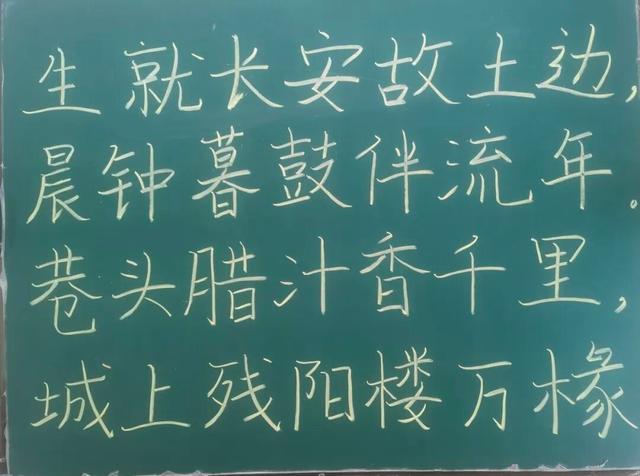 生就长安故土边,
晨钟暮鼓伴流年。
巷头腊汁香千里,
城上残阳楼万椽